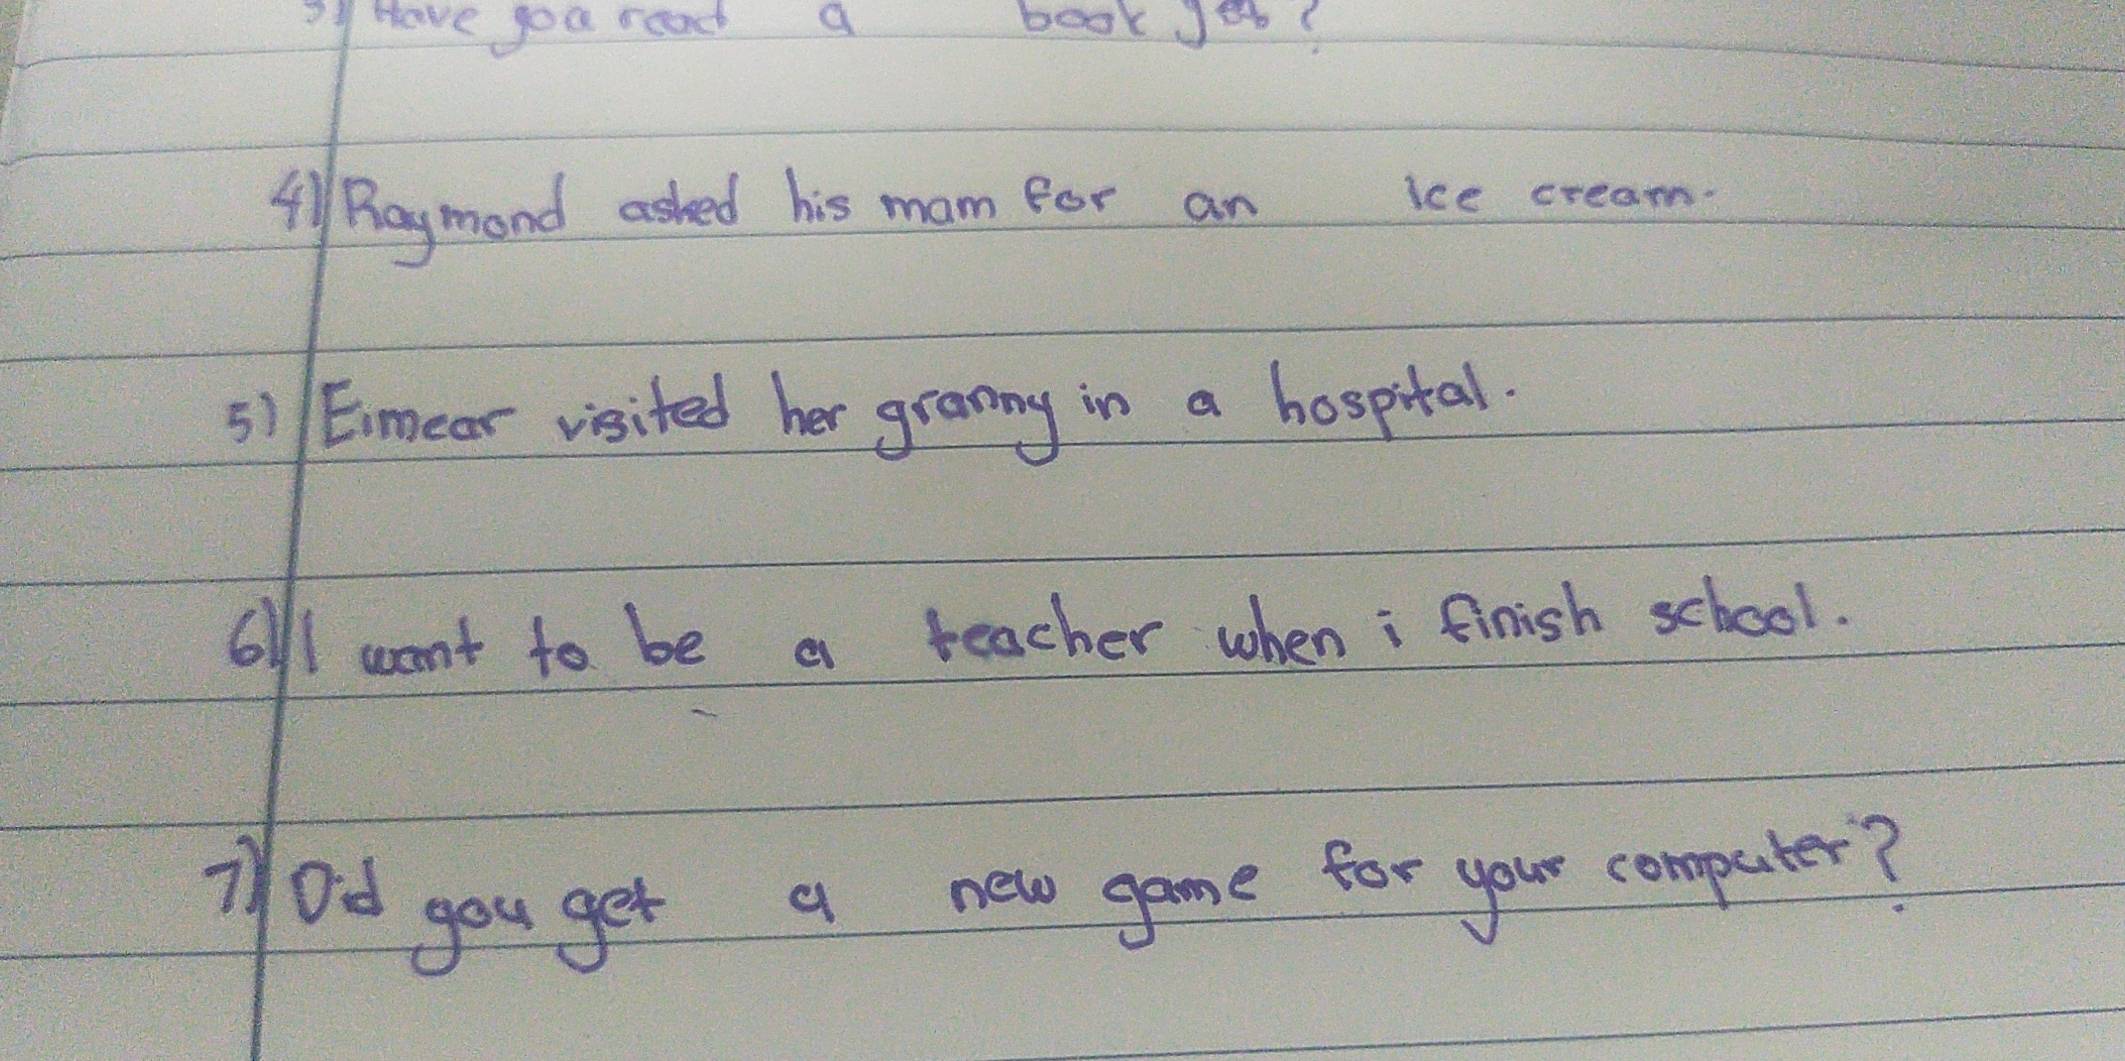 3) Have you read a book yet?
4) Raymond asked his mam for an ice cream.
5) Eimear visited her granny in a hospital.
6) I want to be a teacher when i finish school.
7) Did you get a new game for your computer?